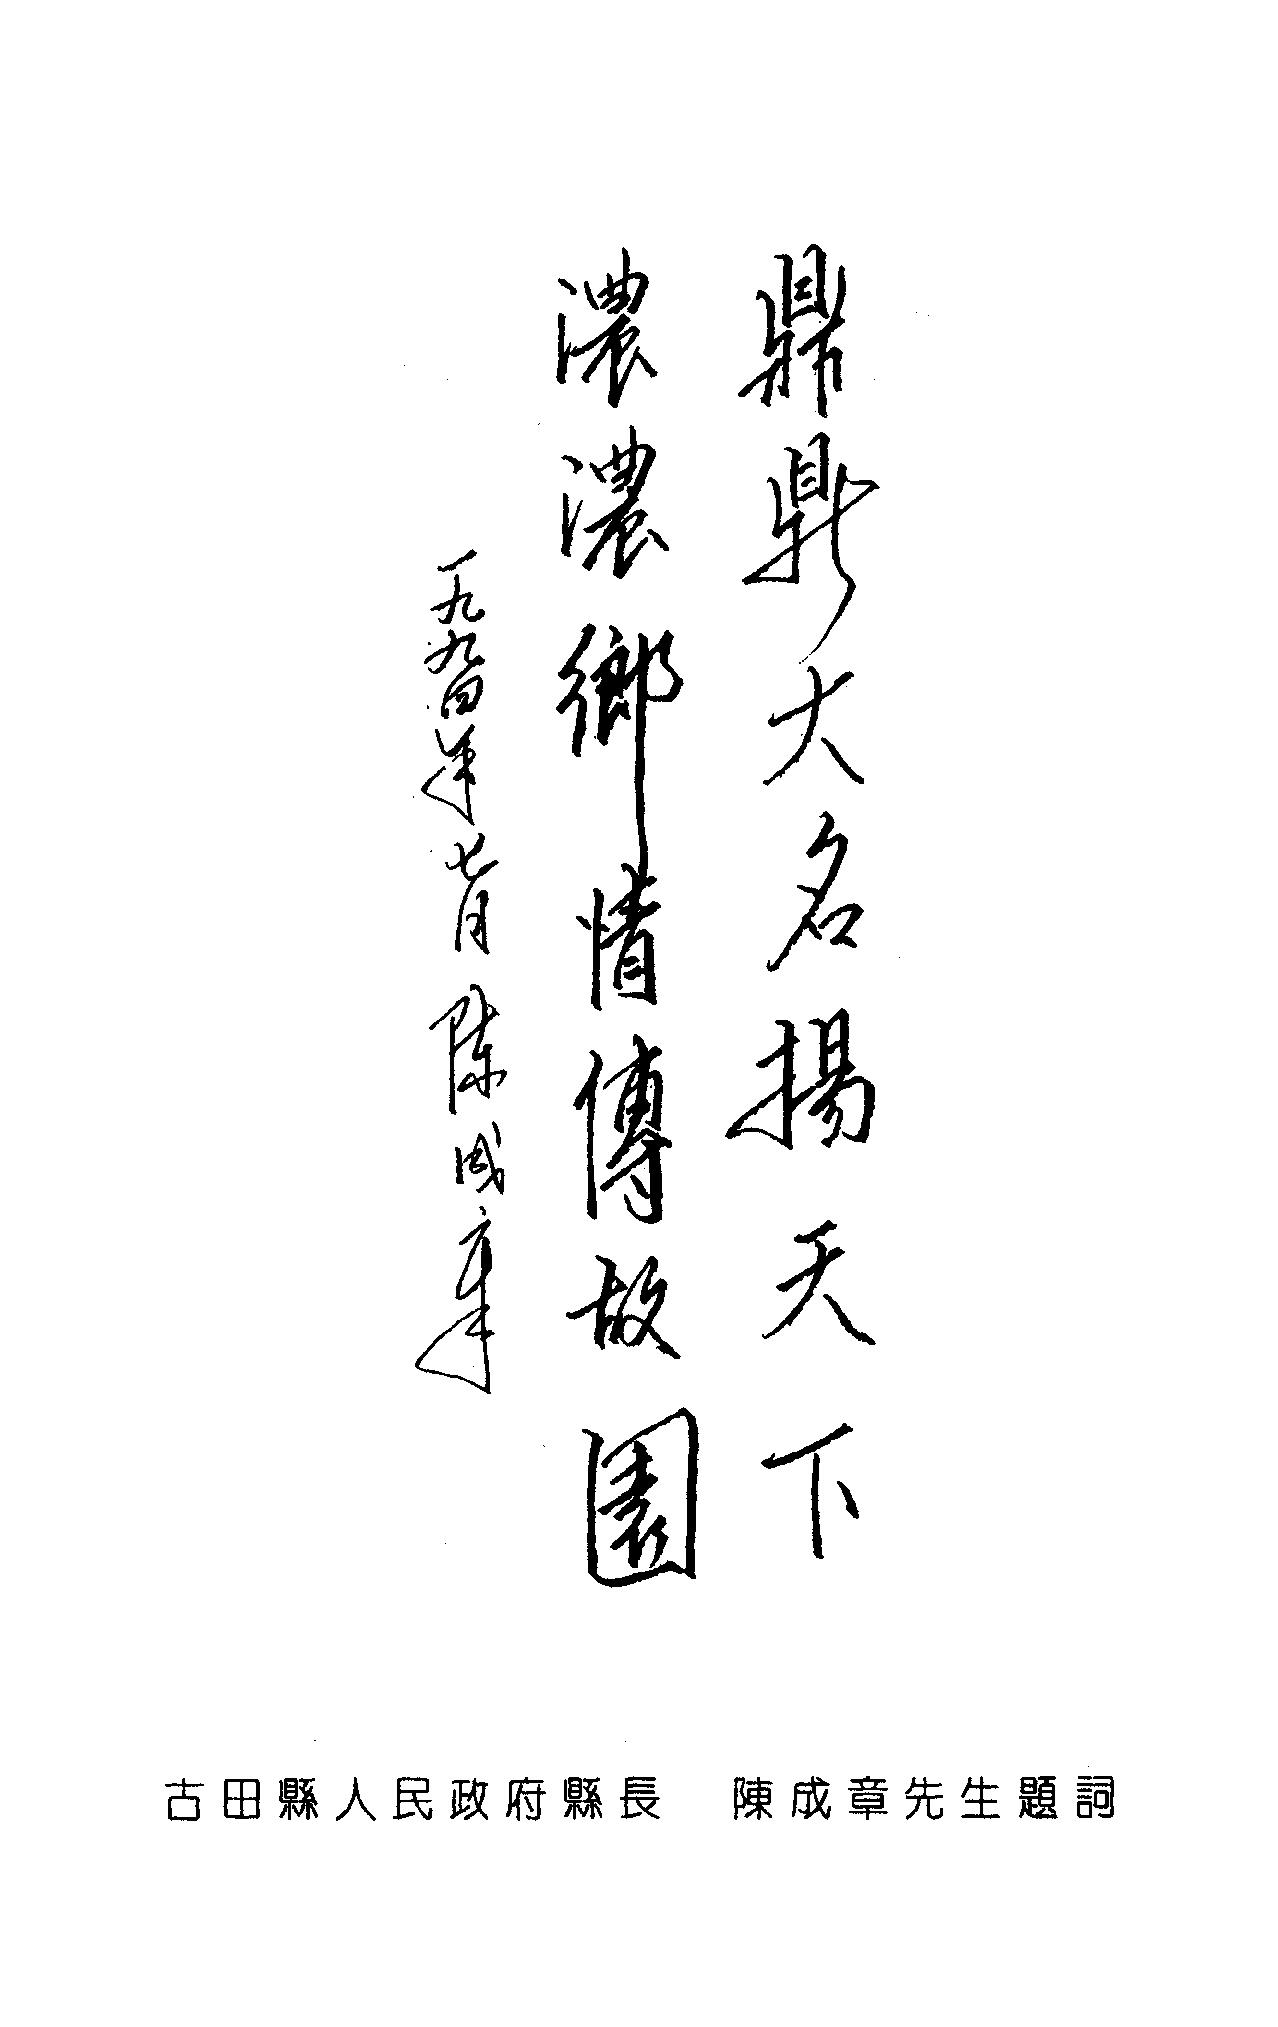 鼎鼎大名揚天下
濃濃鄉情傳故園
一九九四年七月 陈成章
古田縣人民政府縣長 陳成章先生題詞